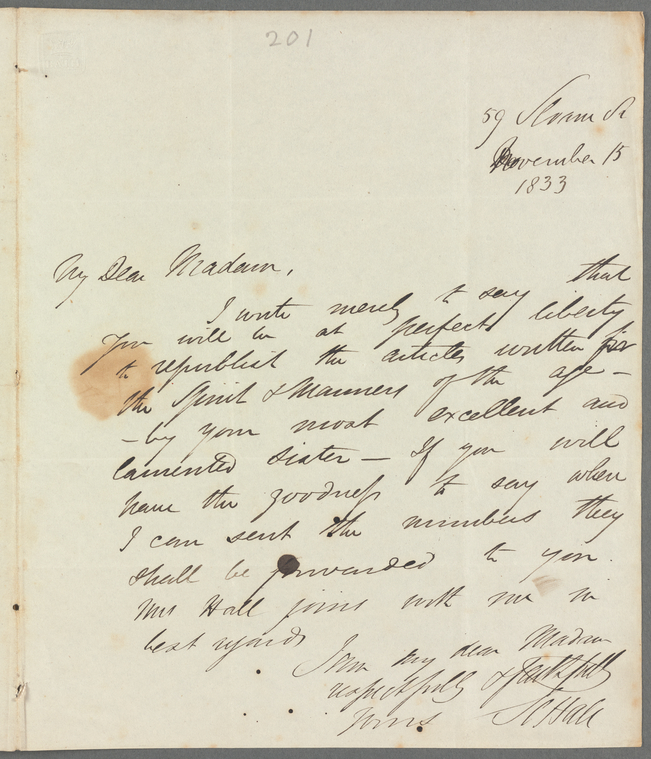 201
59 Sloane St
November 15
1833
My Dear Madam,
I write merely to say that
you will be at perfect liberty
to republish the articles written for
the Spirit & Manners of the age —
— by your most excellent and
lamented sister — If you will
have the goodness to say when
I can sent the numbers they
shall be forwarded to you.
Mrs Hall joins with me in
best regards
I am my dear Madam
respectfully & faithfully
yours S C Hall